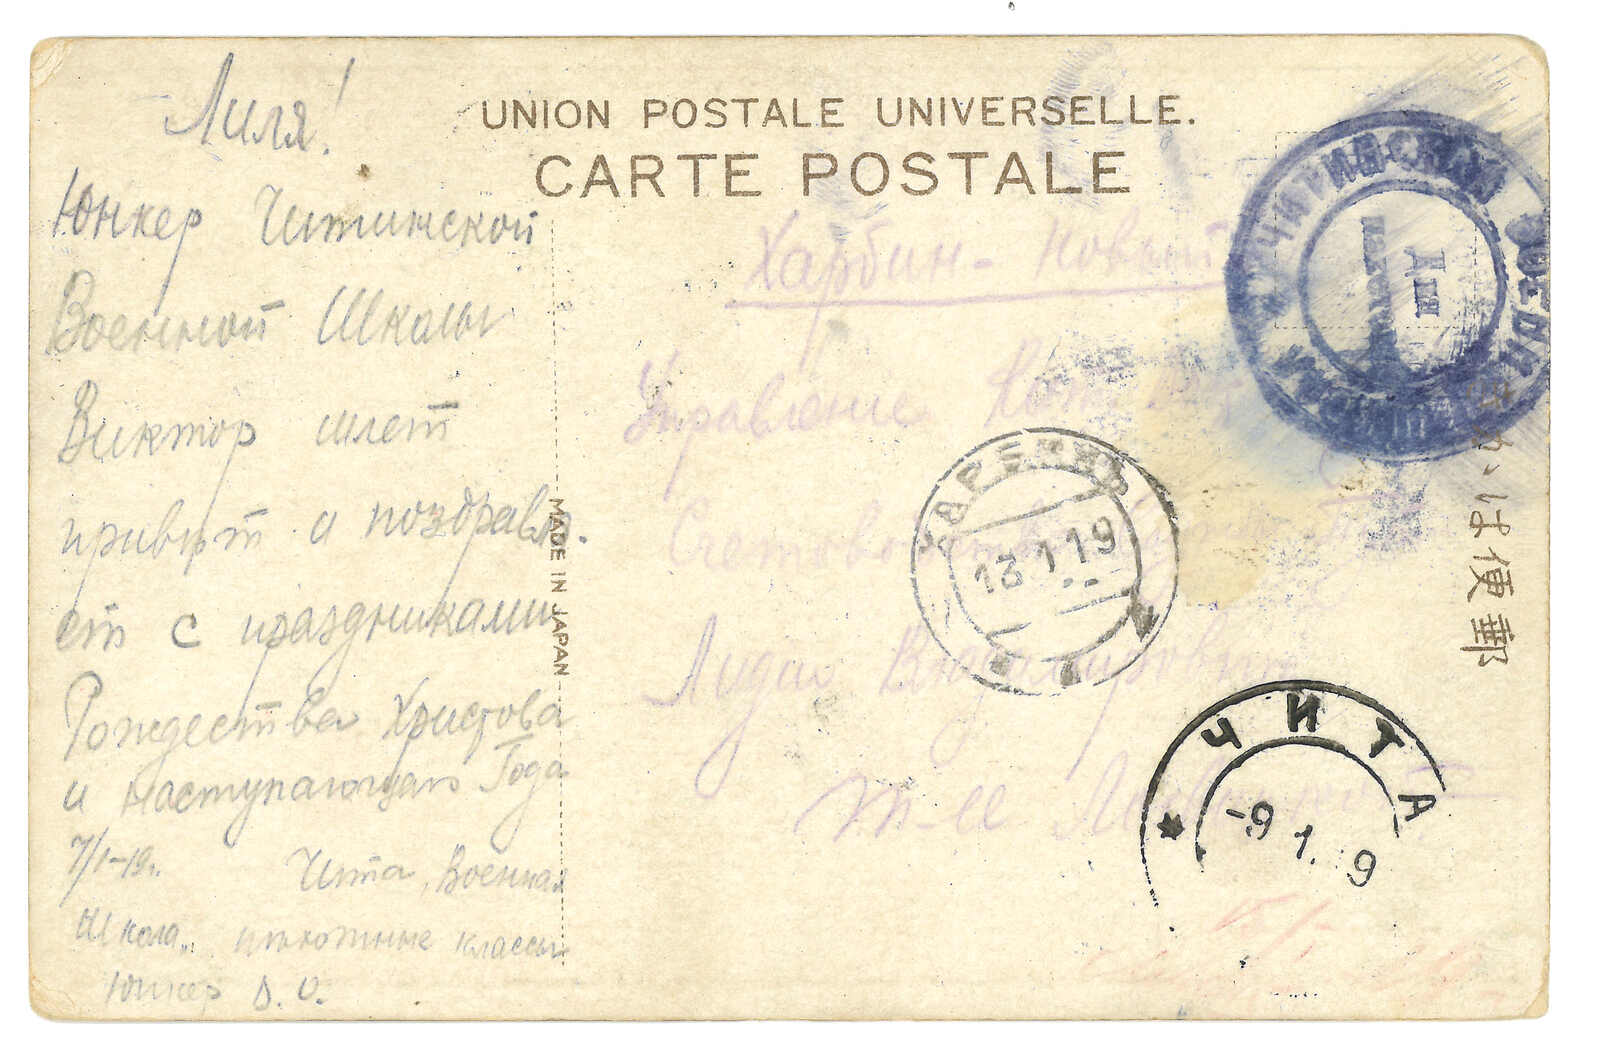 Лиля!
Юнкер Читинской
Военной Школы
Виктор шлет
привѣт и поздравля-
ет с праздниками
Рождества Христова
и наступающаго Года
7/I-19г. Чита, Военная
Школа, пѣхотные классы
Юнкер В. О.
UNION POSTALE UNIVERSELLE.
CARTE POSTALE
MADE IN JAPAN
Харбин - Новый
Управление
Лидия Владимировна
ЧИТИНСКАЯ ВОЕН
Для
пакетов
ХАРБИНЪ
13 1 19
ЧИТА
-9 1. 9
きがは便郵